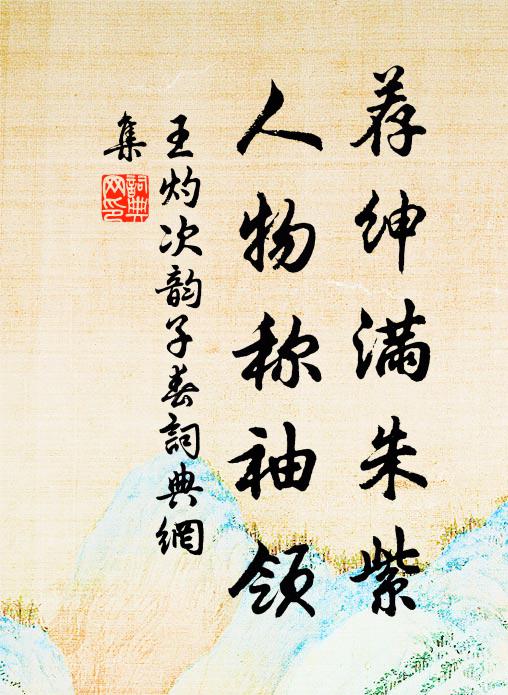 荐绅满朱紫
人物称袖领
王灼次韵子春詞典網
集
詞典
网印